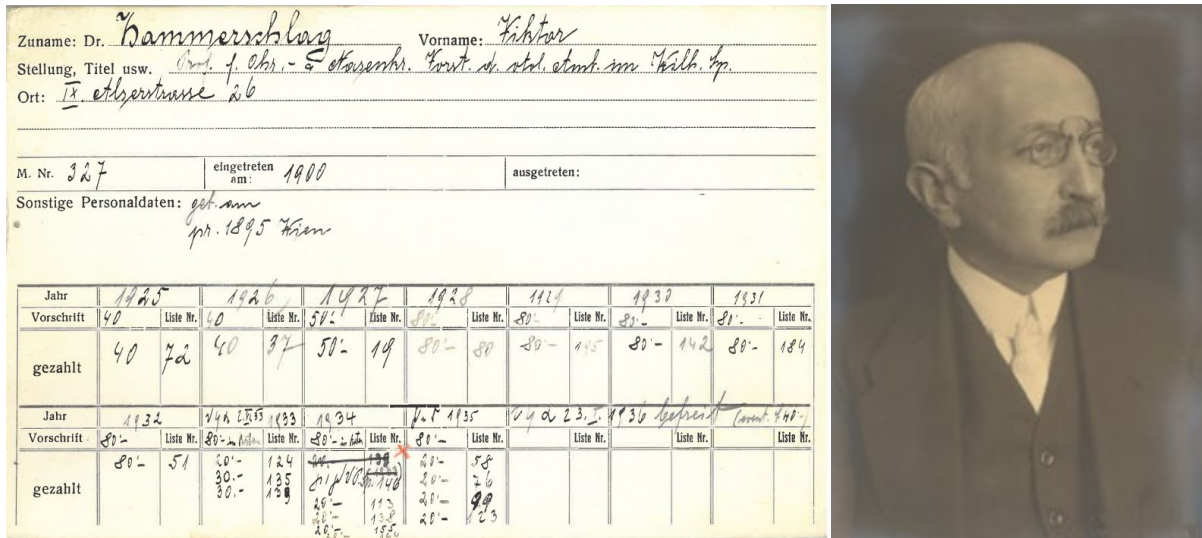 Zuname: Dr. Hammerschlag Vorname: Viktor
Stellung, Titel usw. Prof. f. Ohr.- & Nasenkr. Vorst. d. otol. Amt. im Wilh. Sp.
Ort: IX. Alserstrasse 26
M. Nr. 327 eingetreten am: 1900 ausgetreten:
Sonstige Personaldaten: geb. am
pr. 1895 Wien
Jahr 1925 1926 1927 1928 1929 1930 1931
Vorschrift 40 Liste Nr. 40 Liste Nr. 50'- Liste Nr. 80'- Liste Nr. 80'- Liste Nr. 80'- Liste Nr. 80'- Liste Nr.
gezahlt 40 72 40 37 50'- 19 80'- 80 80'- 195 80'- 142 80'- 184
Jahr 1932 1933 1934 1935 23. I. 1936 befreit
Vorschrift 80'- Liste Nr. 80'- in Raten Liste Nr. 80'- in Raten Liste Nr. 80'- Liste Nr. Liste Nr. Liste Nr. Liste Nr.
gezahlt 80'- 51 20'- 124 20'- 58
30.- 135 20'- 76
30.- 20'- 99
20'- 113 20'- 123
20'- 138
20'- 155